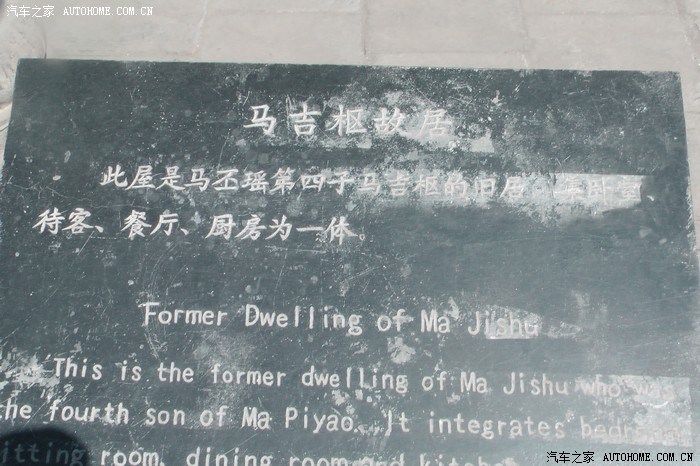 汽车之家 AUTOHOME.COM.CN
马吉枢故居
此屋是马丕瑶第四子马吉枢的旧居,集卧室、
待客、餐厅、厨房为一体。
Former Dwelling of Ma Jishu
This is the former dwelling of Ma Jishu who was
the fourth son of Ma Piyao. It integrates
itting room, dining room and
汽车之家 AUTOHOME.COM.CN